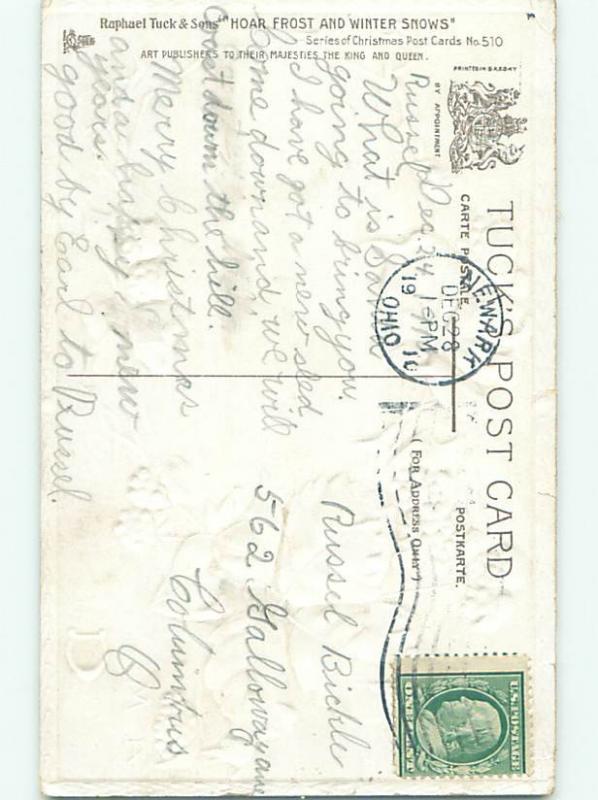 Raphael Tuck & Sons' "HOAR FROST AND WINTER SNOWS"
Series of Christmas Post Cards No. 510
ART PUBLISHERS TO THEIR MAJESTIES THE KING AND QUEEN.
PRINTED IN SAXONY
BY APPOINTMENT
TUCK'S POST CARD
CARTE POSTALE.
POSTKARTE.
(FOR ADDRESS ONLY)
NEWARK
DEC 28
1-PM
1910
OHIO
U.S. POSTAGE
ONE CENT
Dec. 24
Russel
What is Santa
going to bring you.
I have got a new sled
Come down and we will
coast down the hill.
Merry Christmas
and a happy new
years.
good by Earl to Russel.
Russel
562 Galloway ave
Columbus
O